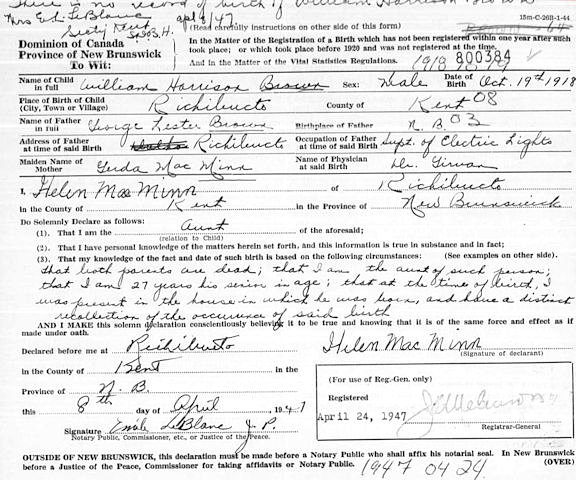 There is no record of birth of William Harrison Brown
Mrs E.L. LeBlanc apl 8/47.
15m-C-26B-1-44
(Read carefully instructions on other side of this form)
Dominion of Canada
Province of New Brunswick
To Wit:
In the Matter of the Registration of a Birth which has not been registered within one year after such
took place; or which took place before 1920 and was not registered at the time.
And in the Matter of the Vital Statistics Regulations. 1918 800384
Name of Child in full William Harrison Brown Sex: Male Date of Birth Oct. 19th 1918
Place of Birth of Child (City, Town or Village) Richibucto County of Kent 08
Name of Father in full George Lester Brown Birthplace of Father N. B. 03
Address of Father at time of said Birth Richibucto Occupation of Father at time of said Birth Supt. of Electric Lights
Maiden Name of Mother Gerda Mac Minn Name of Physician at said Birth Dr. Girvan
I, Helen Mac Minn of Richibucto
in the County of Kent in the Province of New Brunswick
Do Solemnly Declare as follows:
(1). That I am the aunt of the aforesaid;
(relation to Child)
(2). That I have personal knowledge of the matters herein set forth, and this information is true in substance and in fact;
(3). That my knowledge of the fact and date of such birth is based on the following circumstances: (See examples on other side).
that both parents are dead; that I am the aunt of such person;
that I am 27 years his senior in age; that at the time of birth, I
was present in the house in which he was born, and have a distinct
recollection of the occurence of said birth
AND I MAKE this solemn declaration conscientiously believing it to be true and knowing that it is of the same force and effect as if
made under oath.
Declared before me at Richibucto Helen Mac Minn
(Signature of declarant)
in the County of Kent in the
Province of N. B.
(For use of Reg.-Gen. only)
this 8th day of April 1947
Registered
April 24, 1947
Registrar-General
Signature Emile LeBlanc J. P.
Notary Public, Commissioner, etc., or Justice of the Peace.
OUTSIDE OF NEW BRUNSWICK, this declaration must be made before a Notary Public who shall affix his notarial seal. In New Brunswick
before a Justice of the Peace, Commissioner for taking affidavits or Notary Public. 1947 04 24. (OVER)